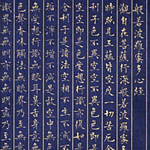 般若波羅蜜多心經
觀自在菩薩行深般若波羅
時照見五蘊皆空度一切苦
利子色不異空空不異色
空空即是色受想行識亦
舍利子是諸法空相不
垢不淨不增不減是故空
無受想行識無眼耳鼻舌
色聲香味觸法無眼界
無明亦無無明盡乃至